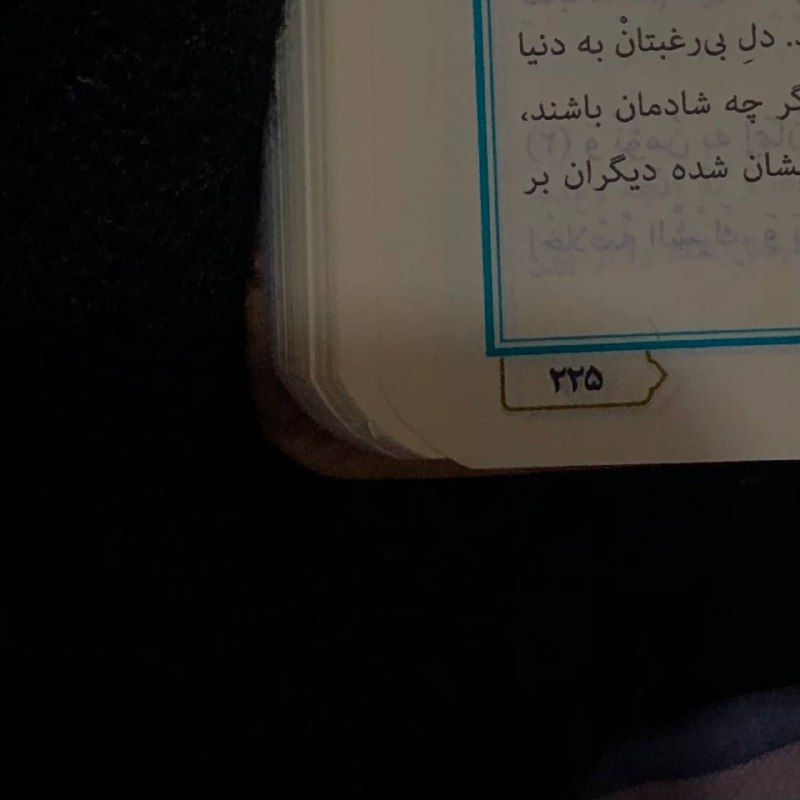 دلِ بی‌رغبتانْ به دنیا
گر چه شادمان باشند،
شده دیگران بر
۲۲۵